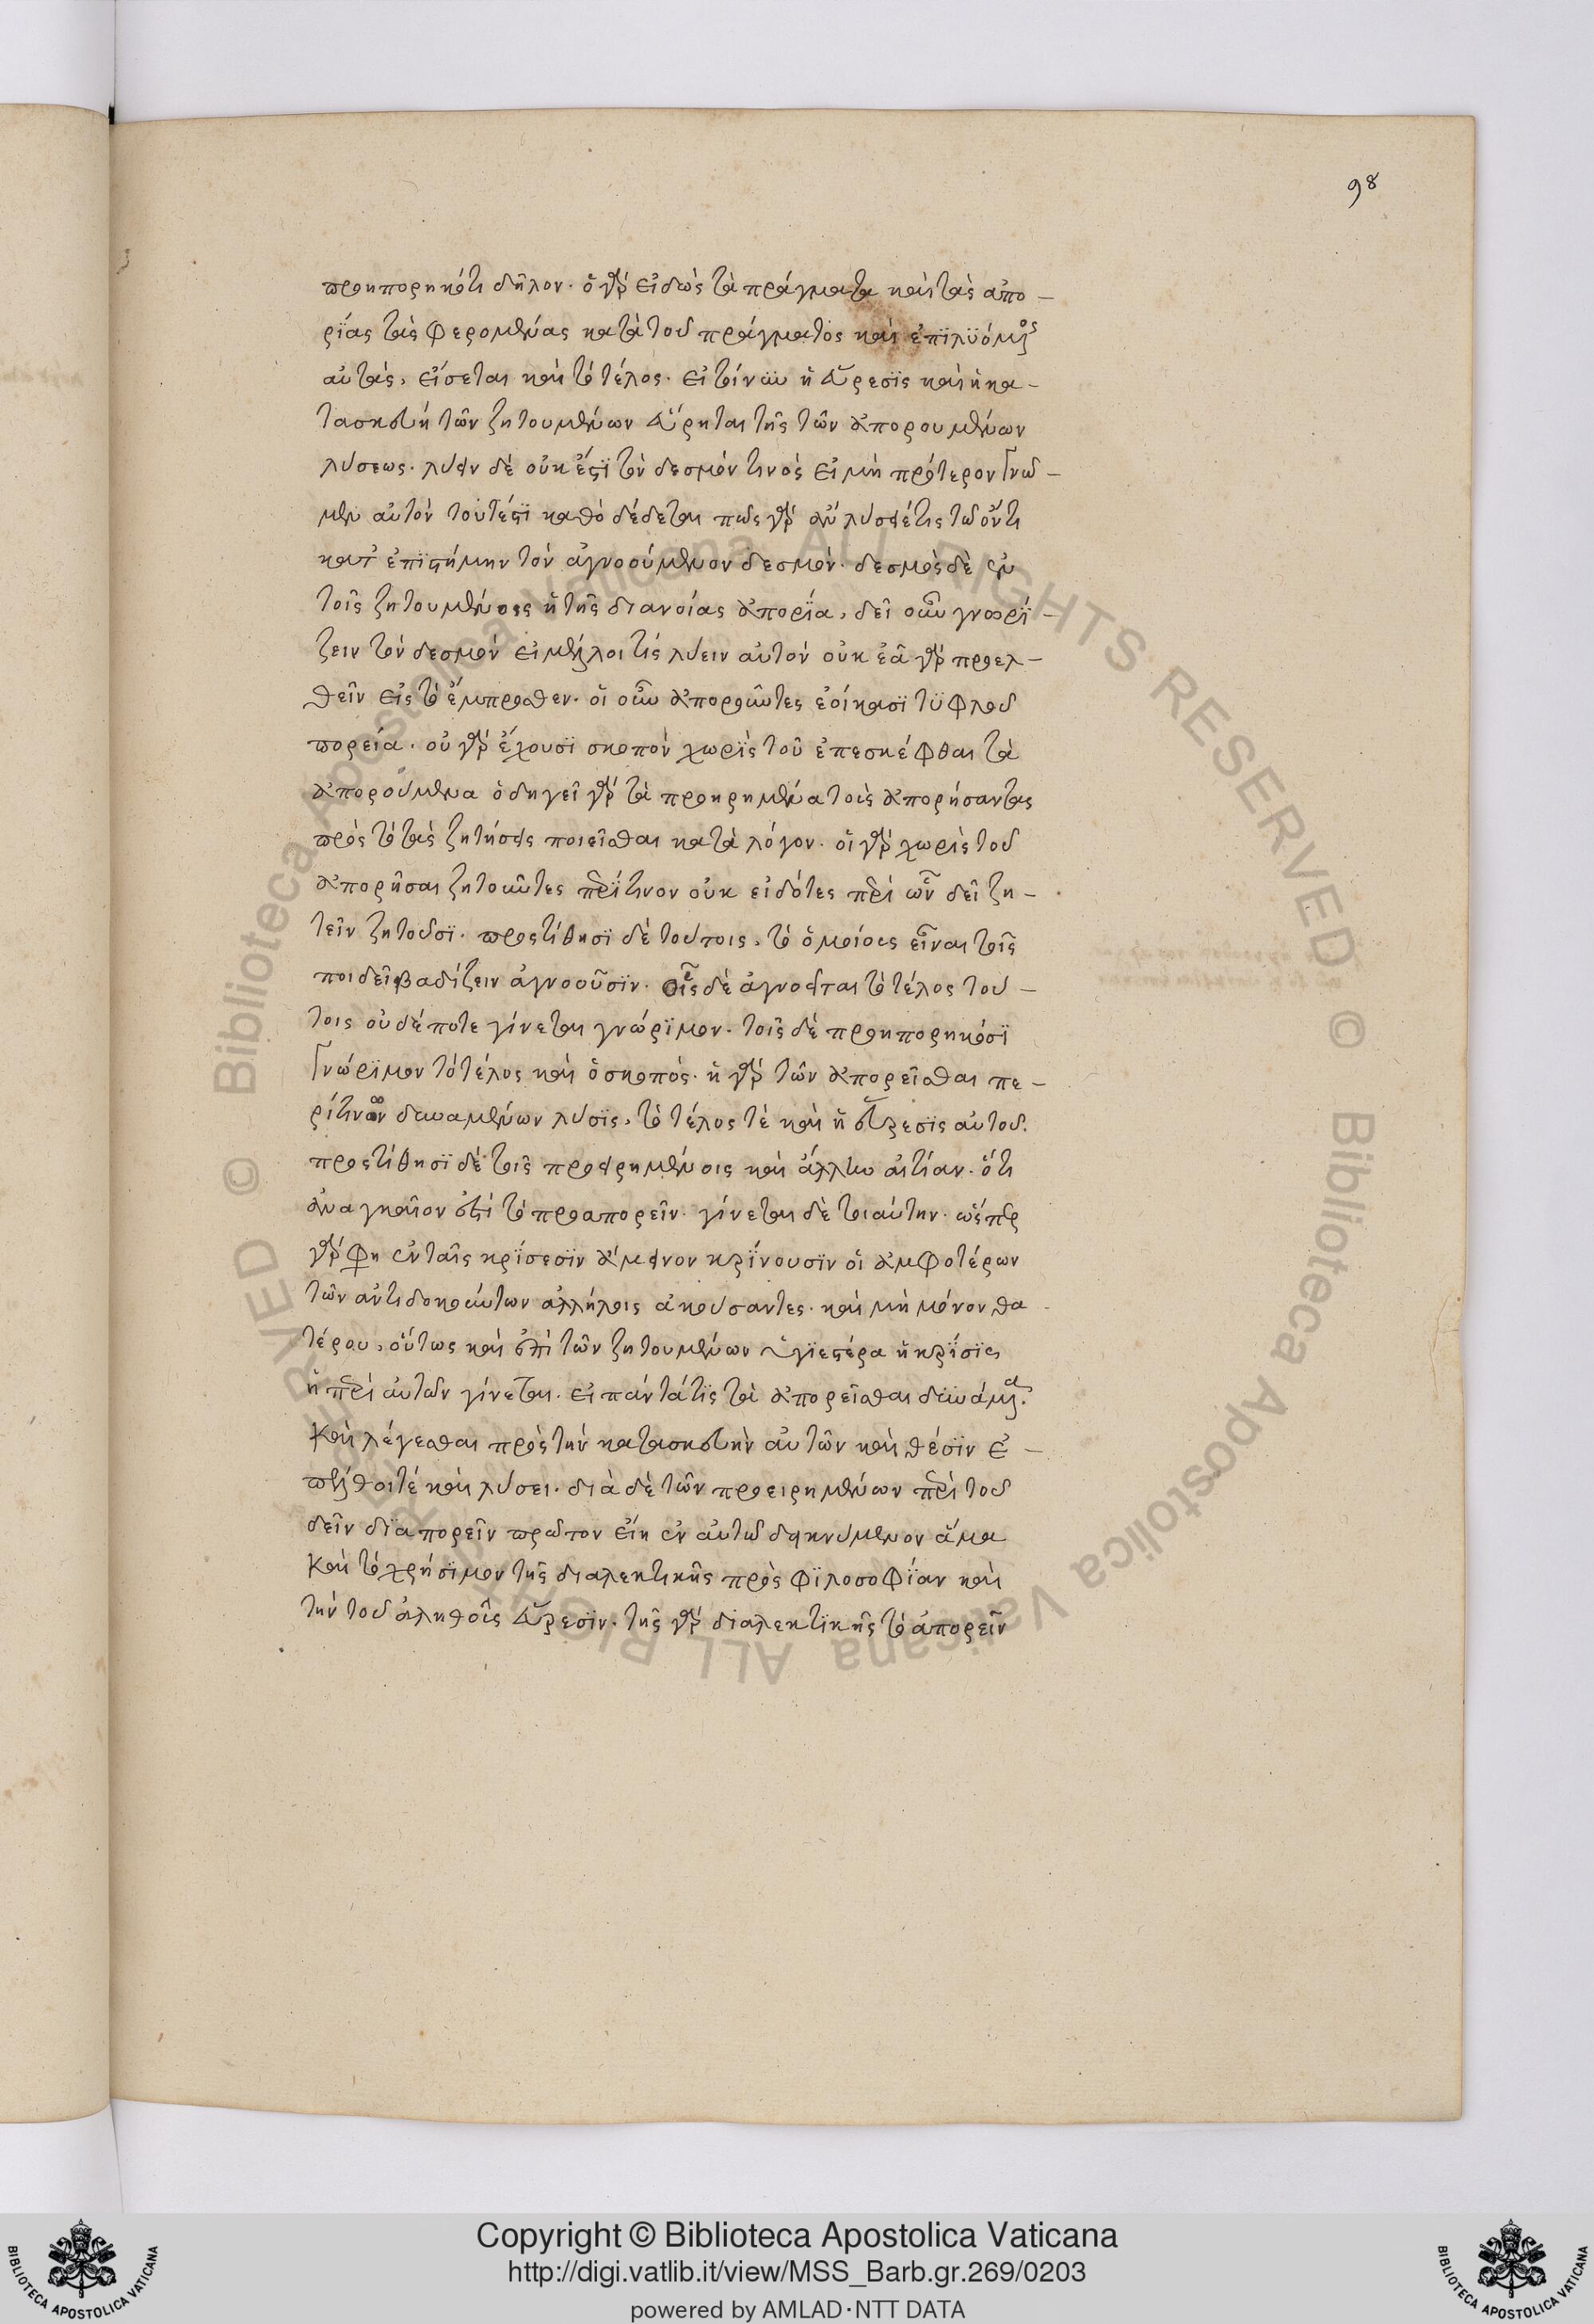 98
προηπορηκότι δῆλον· ὁ γὰρ εἰδὼς τὰ πράγματα καὶ τὰς ἀπο-
ρίας τὰς φερομένας κατὰ τοῦ πράγματος καὶ ἐπιλυόμενος
αὐτὰς, εἴσεται καὶ τὸ τέλος· εἰ τοίνυν ἡ εὕρεσις καὶ ἡ κα-
τασκευὴ τῶν ζητουμένων εὕρηται τῆς τῶν ἀπορουμένων
λύσεως· λύειν δὲ οὐκ ἔστι τὸν δεσμόν τινος εἰ μὴ πρότερον γνῶ-
μεν αὐτὸν τουτέστι καθὸ δέδεται πῶς γὰρ ἂν λύσειέ τις τῶ ὄντι
κατ' ἐπιστήμην τὸν ἀγνοούμενον δεσμόν· δεσμὸς δὲ ἐν
τοῖς ζητουμένοις ἡ τῆς διανοίας ἀπορία, δεῖ οὖν γνωρί-
ζειν τὸν δεσμὸν εἰ μέλλοι τίς λύειν αὐτὸν οὐκ ἐᾶ γὰρ προελ-
θεῖν εἰς τὸ ἔμπροσθεν· οἱ οὖν ἀποροῦντες ἐοίκασι τυφλοῦ
πορεία· οὐ γὰρ ἔχουσι σκοπὸν χωρὶς τοῦ ἐπεσκέφθαι τὰ
ἀπορούμενα ὁδηγεῖ γὰρ τὰ προηρημένα τοὺς ἀπορήσαντας
πρὸς τὸ τὰς ζητήσεις ποιεῖσθαι κατὰ λόγον· οἱ γὰρ χωρὶς τοῦ
ἀπορῆσαι ζητοῦντες περί τινον οὐκ εἰδότες περὶ ὧν δεῖ ζη-
τεῖν ζητοῦσι· προστίθησι δὲ τούτοις, τὸ ὁμοίους εἶναι τοῖς
ποι δεῖ βαδίζειν ἀγνοοῦσιν· οἷς δὲ ἀγνοεῖται τὸ τέλος τού-
τοις οὐδέποτε γίνεται γνώριμον· τοῖς δὲ προηπορηκόσι
γνώριμον τὸ τέλος καὶ ὁ σκοπός· ἡ γὰρ τῶν ἀπορεῖσθαι πε-
ρί τινων δυναμένων λύσις, τὸ τέλος τὲ καὶ ἡ εὕρεσις αὐτοῦ.
προστίθησι δὲ τοῖς προειρημένοις καὶ ἄλλην αἰτίαν· ὅτι
ἀναγκαῖον ἐστὶ τὸ προαπορεῖν· γίνεται δὲ τοιαύτην· ὥσπερ
γὰρ φη ἐν ταῖς κρίσεσιν ἄμεινον κρίνουσιν οἱ ἀμφοτέρων
τῶν ἀντιδοκούντων ἀλλήλοις ἀκούσαντες· καὶ μὴ μόνον θα
τέρου, οὕτως καὶ ἐπὶ τῶν ζητουμένων ὑγιεστέρα ἡ κρίσις
ἡ περὶ αὐτῶν γίνεται· εἰ πάντα τὶς τὰ ἀπορεῖσθαι δυνάμενα.
καὶ λέγεσθαι πρὸς τὴν κατασκευὴν αὐτῶν καὶ θέσιν ἐ-
πέλθοι τέ καὶ λύσει· διὰ δὲ τῶν προειρημένων περὶ τοῦ
δεῖν διαπορεῖν πρῶτον εἴη ἐν αὐτῶ δεικνύμενον ἅμα
καὶ τὸ χρήσιμον τῆς διαλεκτικῆς πρὸς φιλοσοφίαν καὶ
τὴν τοῦ ἀληθοῦς εὕρεσιν· τῆς γὰρ διαλεκτικῆς τὸ ἀπορεῖν
Copyright © Biblioteca Apostolica Vaticana
http://digi.vatlib.it/view/MSS_Barb.gr.269/0203
powered by AMLAD·NTT DATA